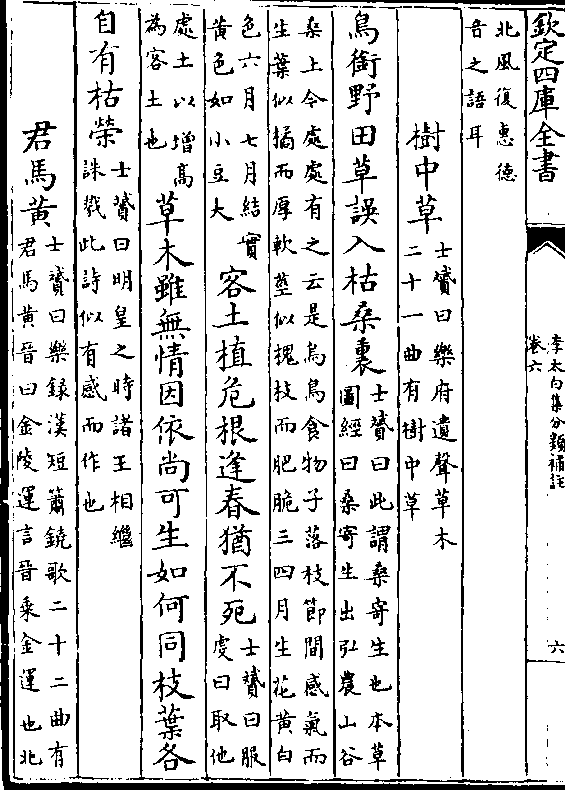 欽定四庫全書
李太白集分類補註
卷六
六
北風復惠德
音之語耳
樹中草
士贇曰樂府遺聲草木
二十一曲有樹中草
鳥銜野田草誤入枯桑裏
士贇曰此謂桑寄生也本草
圖經曰桑寄生出弘農山谷
桑上今處處有之云是烏鳥食物子落枝節間感氣而
生葉似橘而厚軟莖似槐枝而肥脆三四月生花黃白
色六月七月結實
黃色如小豆大
客土植危根逢春猶不死
士贇曰服
虔曰取他
處土以增高
為客土也
草木雖無情因依尚可生如何同枝葉各
自有枯榮
士贇曰明皇之時諸王相繼
誅戮此詩似有感而作也
君馬黃
士贇曰樂録漢短簫鐃歌二十二曲有
君馬黃晉曰金陵運言晉乘金運也北